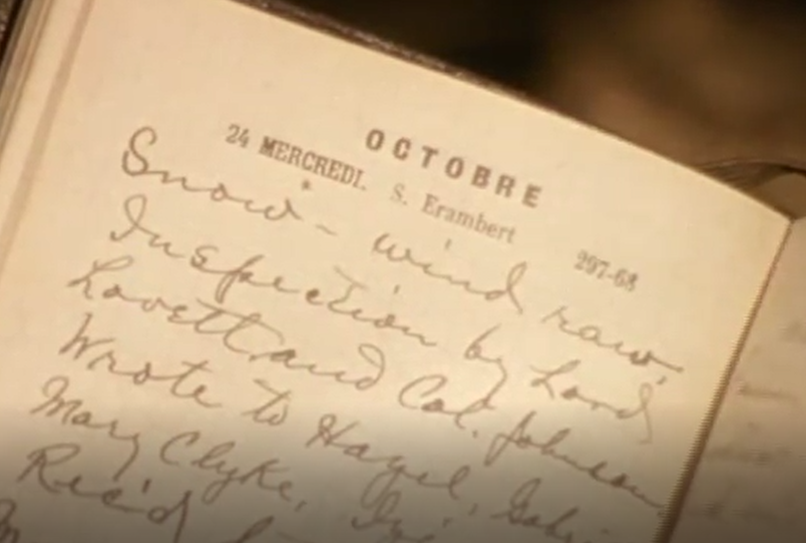 OCTOBRE
24 MERCREDI. S. Erambert 297-68
Snow - wind raw.
Inspection by Lord
Lovett and Col. Johnson.
Wrote to Hazel,
Mary Clyke,
Rec'd